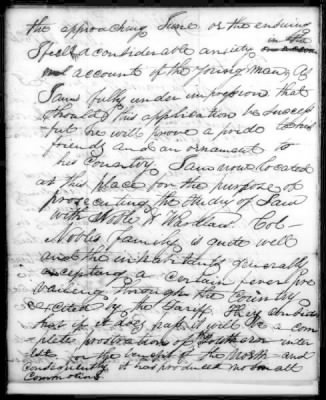 the approaching June or the ensuing
I feel a considerable anxiety on
account of the young man, as
I am fully under impression that
should this application be success
ful he will prove a pride to his
friends and an ornament to
his Country. I am now located
at this place for the purpose of
prosecuting the study of Law
with Noble & Wardlaw. Col-
Nobles family is quite well
and the inhabitants generally
excepting a certain fever pre
vailing through the Country
excited by the Tariff. They
that if it does pass it will be a com
plete prostration of Southern inter
est for the benefit of the North and
consequently it has produced no small
commotions